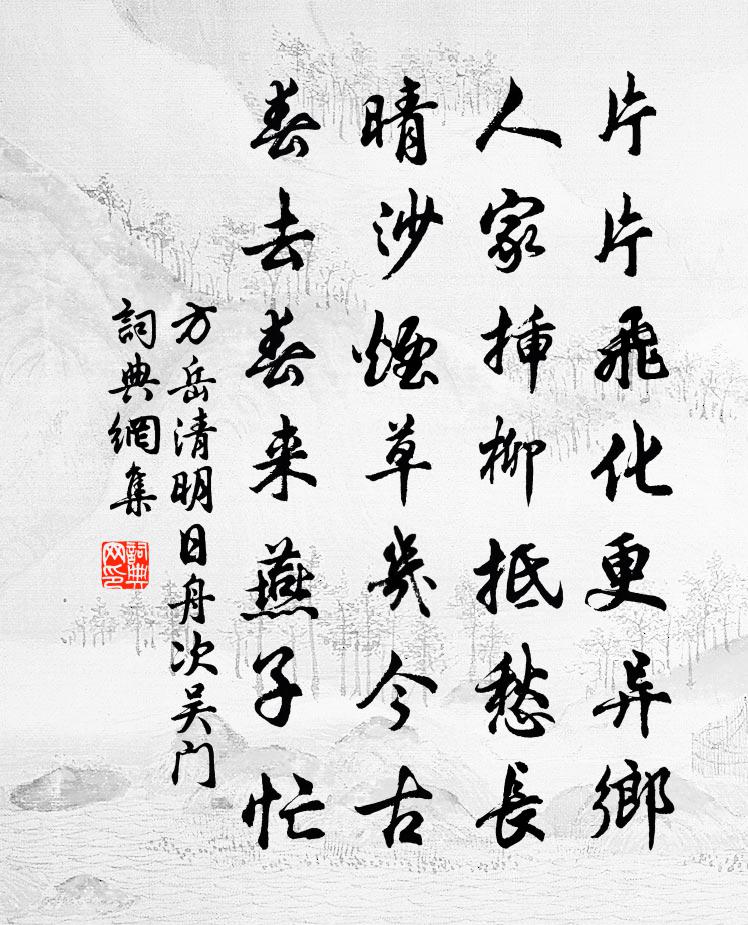 片片飛化更异鄉
人家揷柳抵愁長
晴沙煙草幾今古
春去春来燕子忙
方岳清明日舟次吴门
詞典網集
詞典
网印